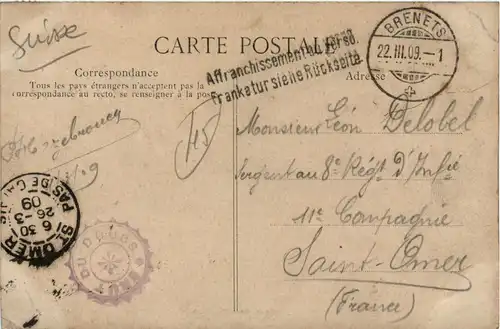 Suisse
CARTE POSTALE
Correspondance
Tous les pays étrangers n'acceptent pas la
correspondance au recto, se renseigner à la pos
Affranchissement au verso.
Frankatur siehe Rückseite.
Adresse
BRENETS
22.III.09.-1
Monsieur Léon Delobel
Sergent au 8e Régt d'Infie
11e Compagnie
Saint-Omer
(France)
Hazebrouck
ST OMER
PAS DE CALAIS
6 30
26-3
09
SAUT DU DOUBS